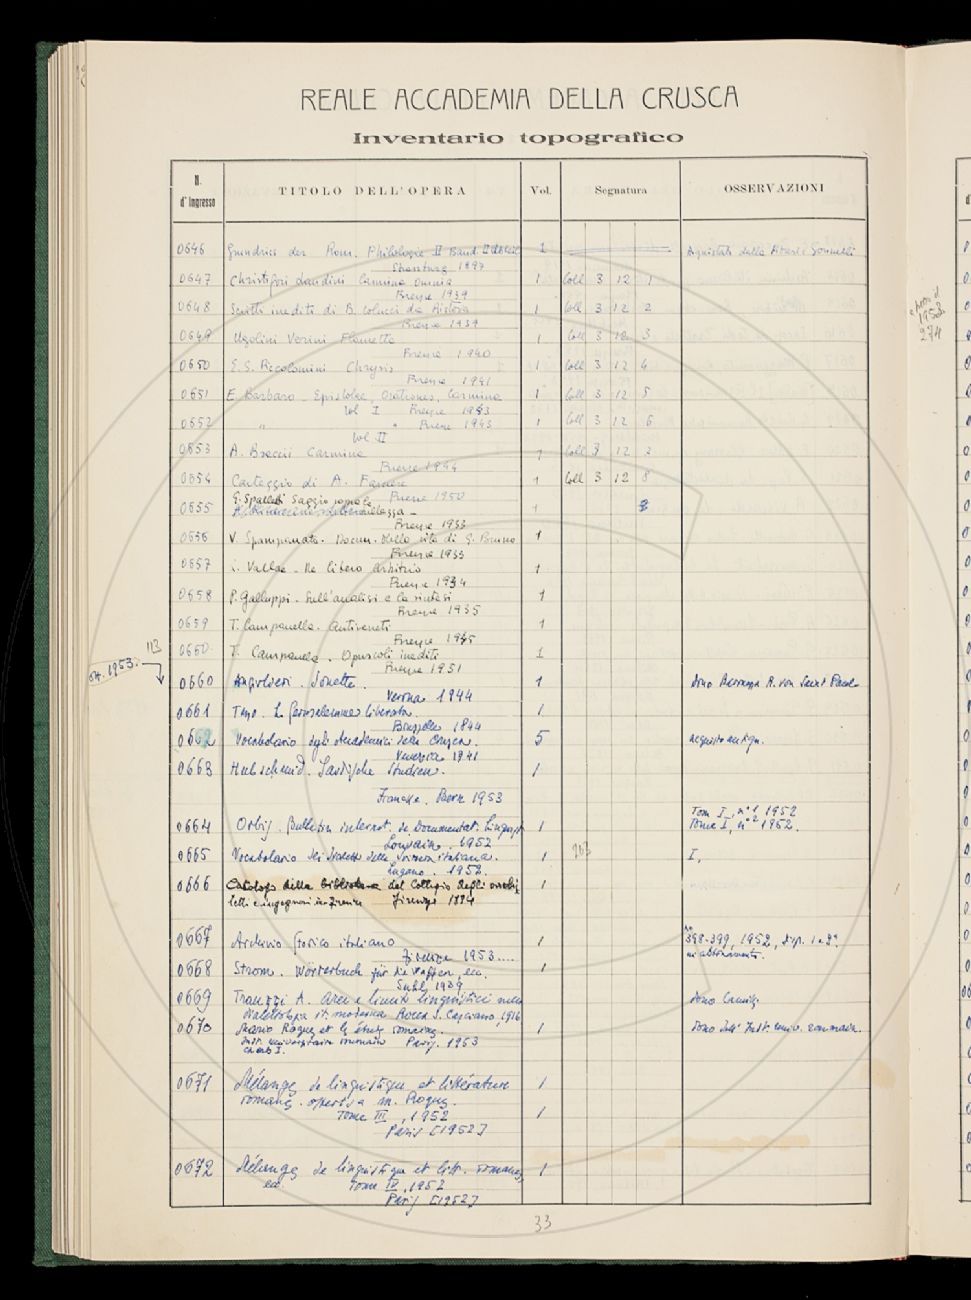 REALE ACCADEMIA DELLA CRUSCA
Inventario topografico
N. d'Ingresso TITOLO DELL'OPERA Vol. Segnatura OSSERVAZIONI
0646 Grundriss der Rom. Philologie II Band. 1
Strassburg 1897
0647 Christofori Landini Carmina Omnia 1 Coll 3 12 1
Firenze 1939
0648 Scritti inediti di B. Colucci da Pistoia 1 Coll 3 12 2
Firenze 1939
0649 Ugolini Verini Flametta 1 Coll 3 12 3
Firenze 1940
0650 E. S. Piccolomini Chrysis 1 Coll 3 12 4
Firenze 1941
0651 E. Barbaro - Epistolae, Orationes, Carmina 1 Coll 3 12 5
Vol I Firenze 1943
0652 " " Firenze 1943 1 Coll 3 12 6
Vol II
0653 A. Braccii Carmina 1 Coll 3 12
Firenze 1944
0654 Carteggio di A. Farnese 1 Coll 3 12 8
Firenze 1950
0655 G. Spalletti Saggio sopra la bellezza - 1
Firenze 1933
0656 V. Spampanato. Docum. della vita di G. Bruno 1
Firenze 1933
0657 L. Vallae - De libero arbitrio 1
Firenze 1934
0658 P. Galluppi. Sull'analisi e la sintesi 1
Firenze 1935
0659 T. Campanella. Antiveneti 1
Firenze 1945
0660 T. Campanella. Opuscoli inediti 1
Firenze 1951
113
ott. 1953.
0660 Angiolieri. Sonette. 1 dono
Verona 1944
0661 Tasso. La Gerusalemme liberata. 1
Bruxelles 1844
0662 Vocabolario degli Accademici della Crusca. 5 acquisto antiqu.
Venezia 1741
0663 Hubschmid. Sardische Studien. 1
Francke. Bern 1953
Tom I, n° 1 1952
0664 Orbis. Bulletin internat. de Documentat. Linguist 1 Tome I, n° 2 1952.
Louvain. 1952
0665 Vocabolario dei dialetti della Svizzera italiana. 1 263 I,
Lugano. 1952.
0666 Catalogo della biblioteca del Collegio degli architetti e ingegneri in Firenze 1
Firenze 1894
0667 Archivio storico italiano 1 398-399, 1952, disp. 1 e 2ª
Firenze 1953.... in abbonamento.
0668 Strom. Wörterbuch für die Waffen, ecc. 1
Suhl, 1939
0669 Trauzzi A. Aree e limiti linguistici nella dono
dialettologia it. moderna Rocca S. Casciano, 1916
0670 Mario Roques et les études romanes. 1 dono dell'Inst. univ. roumain.
Inst. universitaire roumain Paris. 1953
Charles I.
0671 Mélanges de linguistique et littérature 1
romanes. offerts a M. Roques.
Tome III, 1952 1
Paris [1952]
0672 Mélanges de linguistique et litt. romanes, 1
ecc Tome IV, 1952
Paris [1952]
33
1953
274